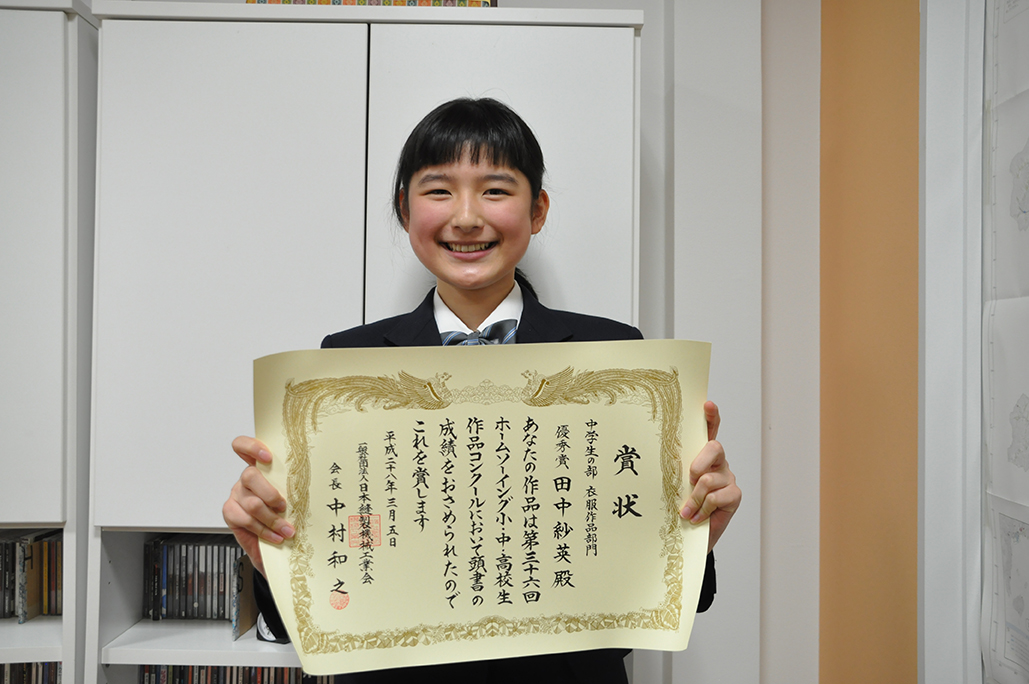 賞状
中学生の部 衣服作品部門
優秀賞 田中紗英殿
あなたの作品は第三十六回
ホームソーイング小・中・高校生
作品コンクールにおいて頭書の
成績をおさめられたので
これを賞します
平成二十八年三月五日
一般社団法人日本縫製機械工業会
会長 中村和之